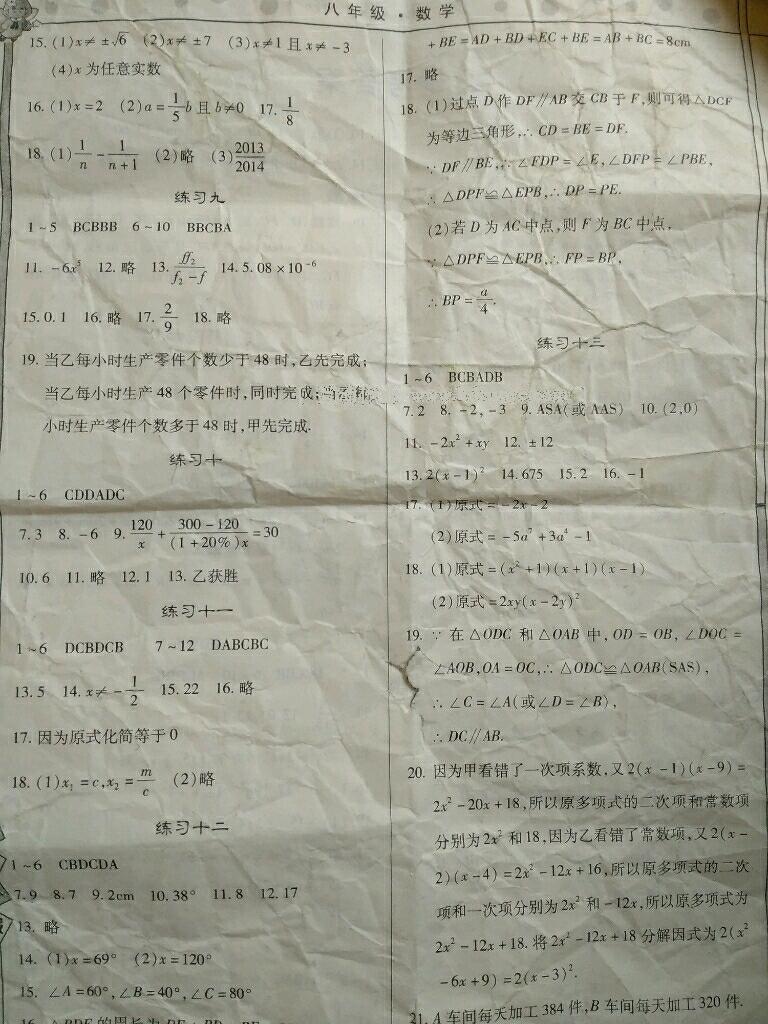 八年级·数学
15. (1)x≠±√6 (2)x≠±7 (3)x≠1且x≠-3
(4)x为任意实数
16. (1)x=2 (2)a=1/5b且b≠0 17. 1/8
18. (1)1/n-1/(n+1) (2)略 (3)2013/2014
练习九
1~5 BCBBB 6~10 BBCBA
11. -6x⁵ 12. 略 13. ff₂/(f₂-f) 14. 5.08×10⁻⁶
15. 0.1 16. 略 17. 2/9 18. 略
19. 当乙每小时生产零件个数少于48时,乙先完成;
当乙每小时生产48个零件时,同时完成;当乙每
小时生产零件个数多于48时,甲先完成.
练习十
1~6 CDDADC
7. 3 8. -6 9. 120/x+(300-120)/((1+20%)x)=30
10. 6 11. 略 12. 1 13. 乙获胜
练习十一
1~6 DCBDCB 7~12 DABCBC
13. 5 14. x≠-1/2 15. 22 16. 略
17. 因为原式化简等于0
18. (1)x₁=c,x₂=m/c (2)略
练习十二
1~6 CBDCDA
7. 9 8. 7 9. 2cm 10. 38° 11. 8 12. 17
13. 略
14. (1)x=69° (2)x=120°
15. ∠A=60°,∠B=40°,∠C=80°
16. △BDE的周长为
+BE=AD+BD+EC+BE=AB+BC=8cm
17. 略
18. (1)过点D作DF∥AB交CB于F,则可得△DCF
为等边三角形,∴CD=BE=DF.
∵DF∥BE,∴∠FDP=∠E,∠DFP=∠PBE,
∴△DPF≌△EPB,∴DP=PE.
(2)若D为AC中点,则F为BC中点,
∵△DPF≌△EPB,∴FP=BP,
∴BP=a/4.
练习十三
1~6 BCBADB
7. 2 8. -2,-3 9. ASA(或AAS) 10. (2,0)
11. -2x²+xy 12. ±12
13. 2(x-1)² 14. 675 15. 2 16. -1
17. (1)原式=-2x-2
(2)原式=-5a⁷+3a⁴-1
18. (1)原式=(x²+1)(x+1)(x-1)
(2)原式=2xy(x-2y)²
19. ∵在△ODC和△OAB中,OD=OB,∠DOC=
∠AOB,OA=OC,∴△ODC≌△OAB(SAS),
∴∠C=∠A(或∠D=∠B),
∴DC∥AB.
20. 因为甲看错了一次项系数,又2(x-1)(x-9)=
2x²-20x+18,所以原多项式的二次项和常数项
分别为2x²和18,因为乙看错了常数项,又2(x-
2)(x-4)=2x²-12x+16,所以原多项式的二次
项和一次项分别为2x²和-12x,所以原多项式为
2x²-12x+18.将2x²-12x+18分解因式为2(x²
-6x+9)=2(x-3)².
21. A车间每天加工384件,B车间每天加工320件.